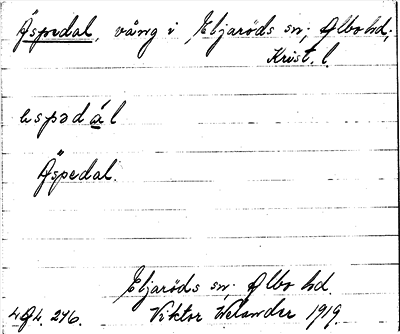 Äspedal, vång i Eljaröds sn; Albo hd;
Krist. l.
espədál
Äspedal.
Eljaröds sn. Albo hd.
Viktor Welander 1919.